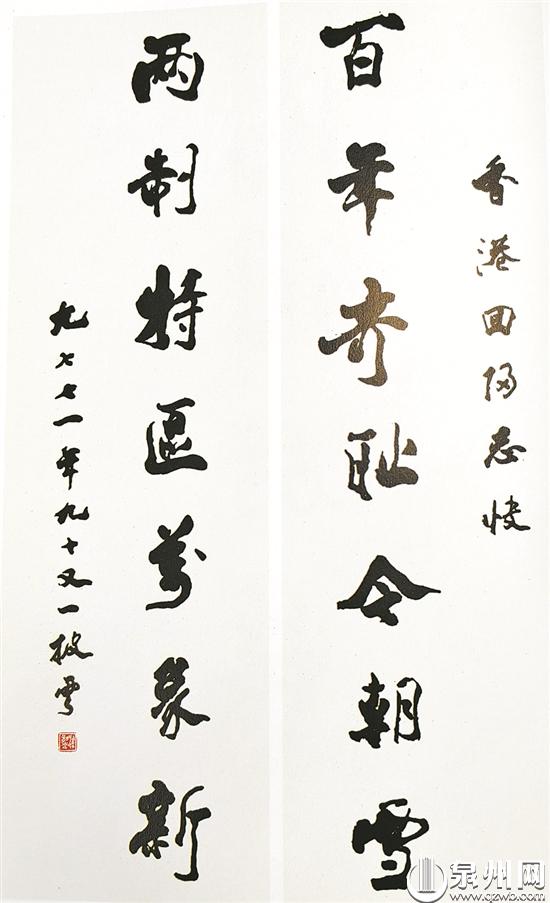 香港回归志快
百年奇耻今朝雪
两制特區萬象新
九七七一年九十又一披雲
泉州网
www.qzwb.com